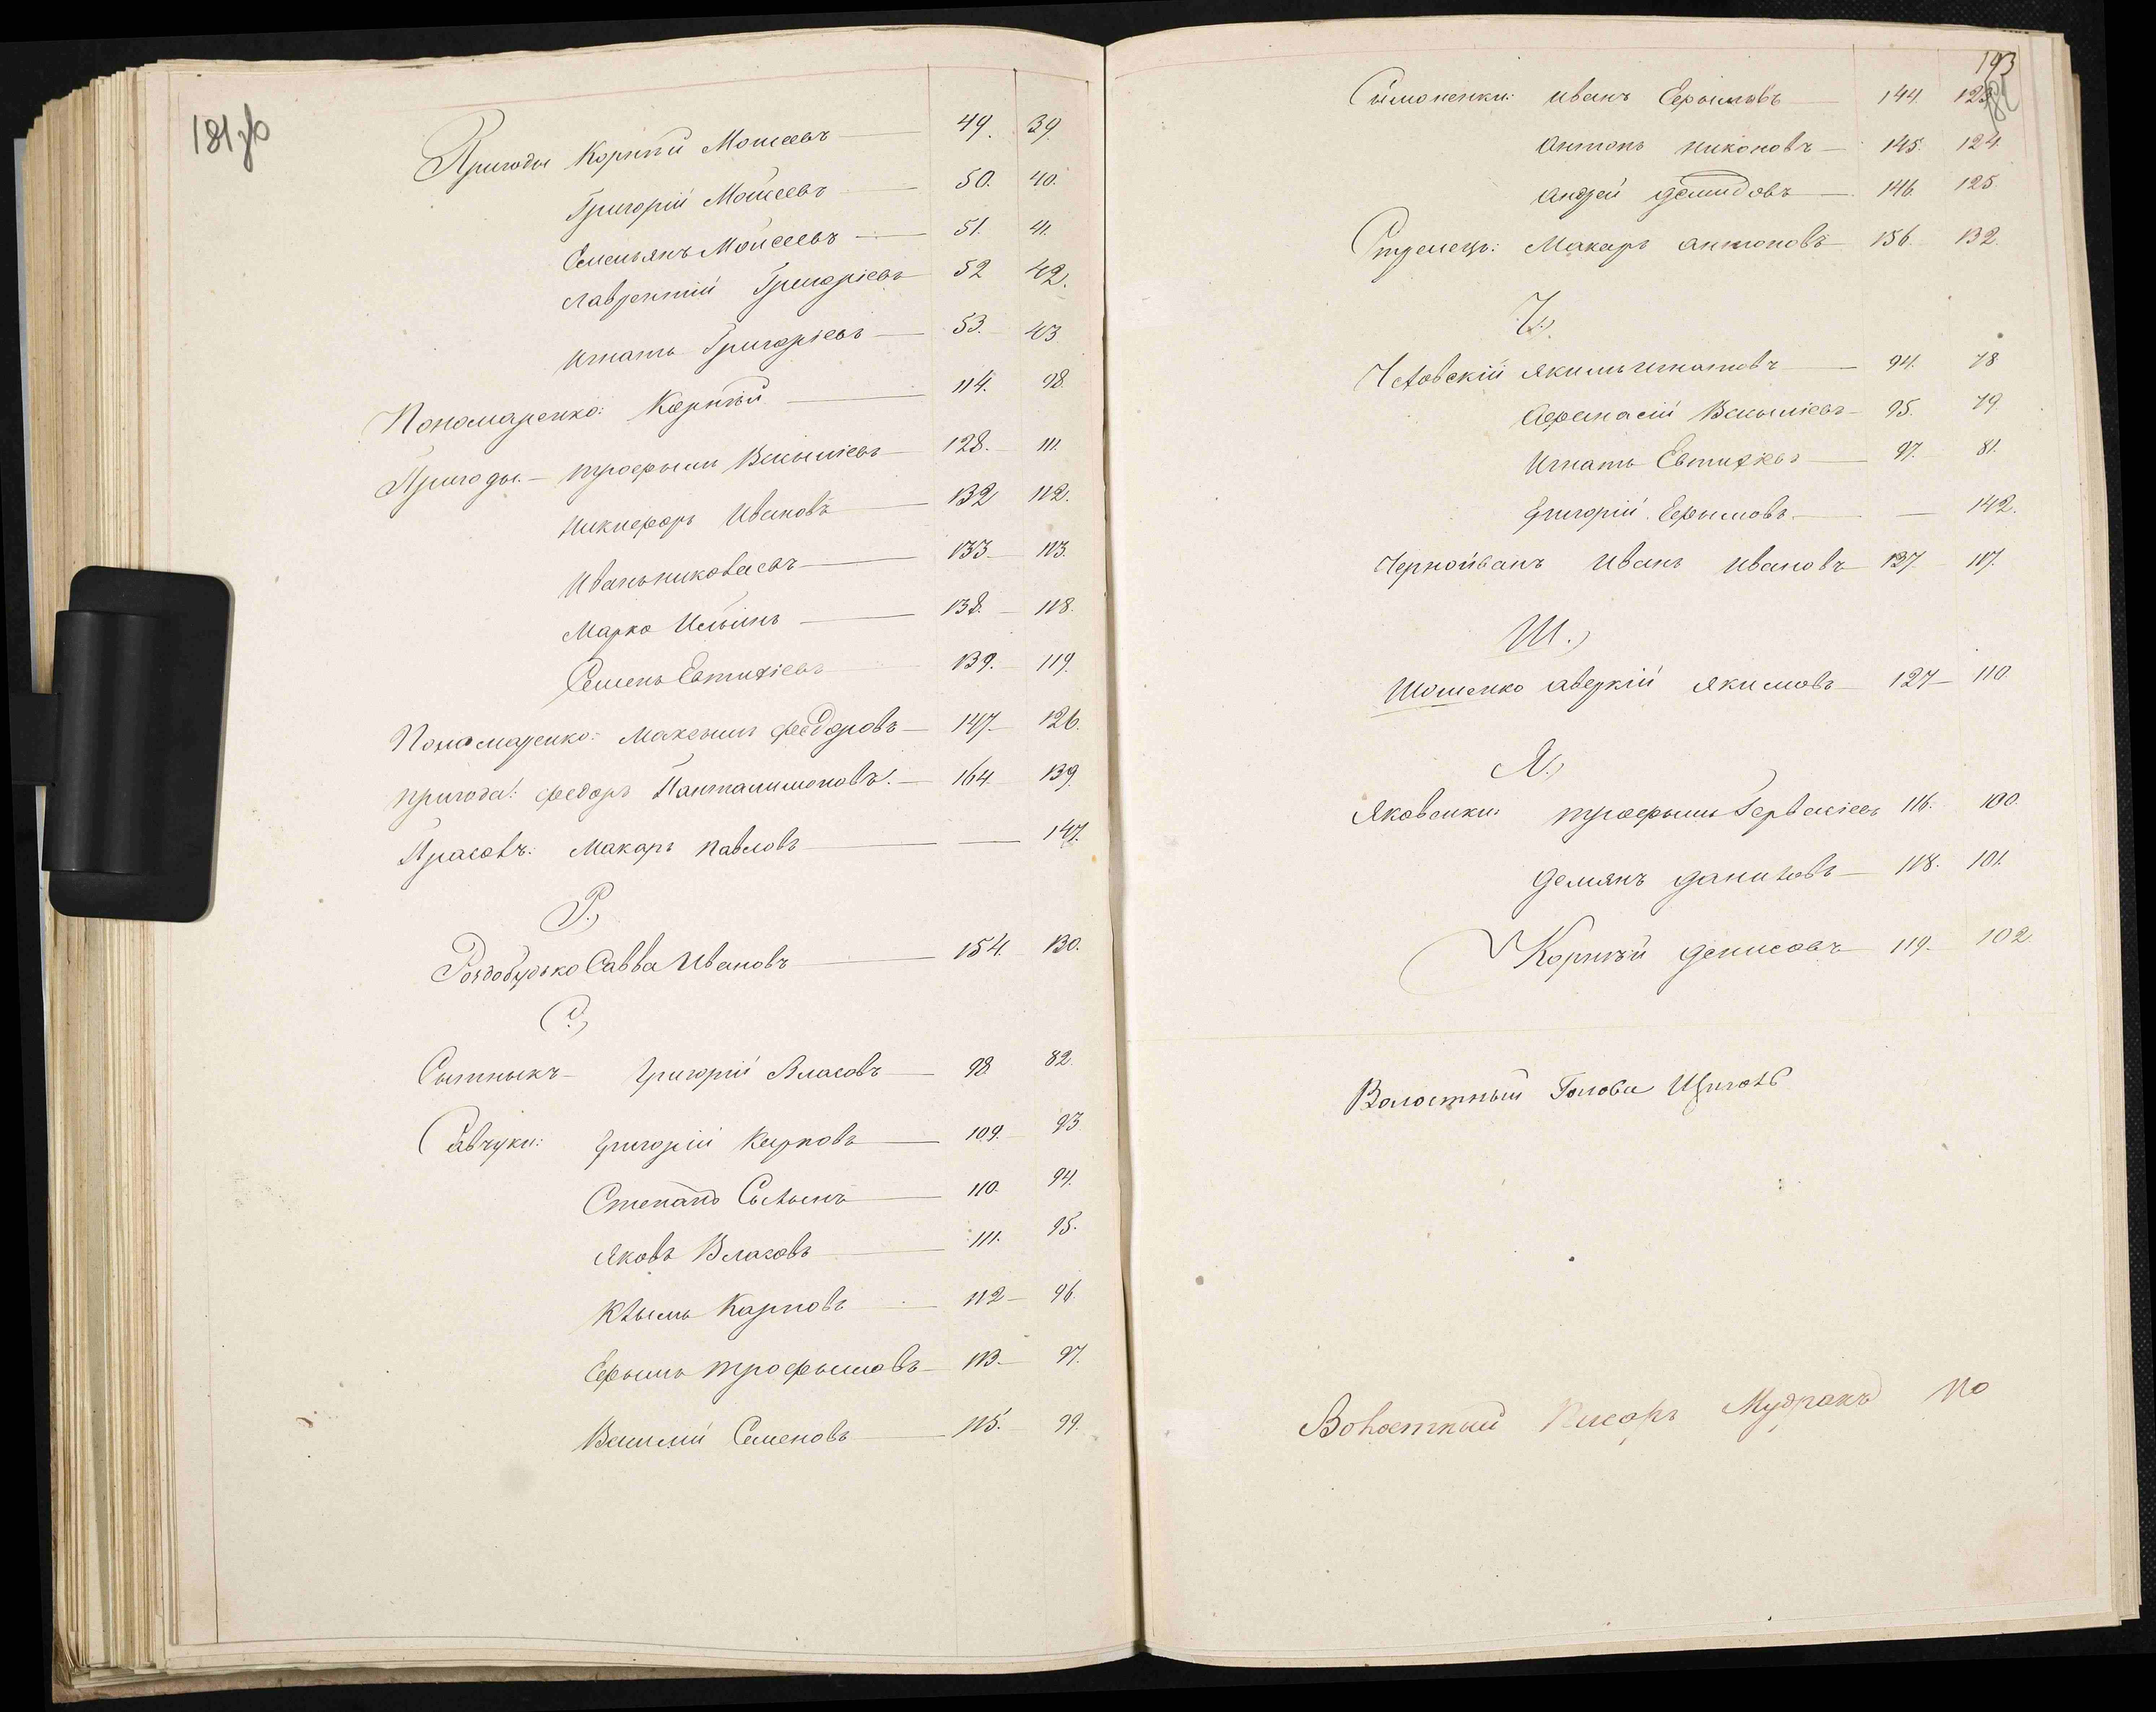 181 зв
Пригоды Корнѣй Моисеевъ — 49. 39.
Григорій Моисеевъ — 50. 40.
Емельянъ Моисеевъ — 51. 41.
Лаврентій Григоріевъ 52 42.
Игнатъ Григоріевъ — 53. 43
Пономаренко: Корнѣй — 114. 98.
Пригоды. — Трофымъ Васыліевъ — 128. — 111.
Никифоръ Ивановъ — 132 112.
Иванъ Николаевъ — 133 — 113.
Марко Ильинъ — 138. — 118.
Семенъ Евтихіевъ — 139. — 119.
Пономаренко: Максымъ Феодоровъ — 147 — 126.
Пригода: Федоръ Панталимоновъ. — 164. 139.
Прасовъ: Макаръ Павловъ — — 147.
Р.,
Роздобудько Савва Ивановъ — 154. 130.
С.,
Сытныкъ — Григорій Власовъ — 98 82.
Савчуки: Григорій Карповъ — 109. 93
Степанъ Сылынъ — 110. 94.
Яковъ Власовъ — 111. 95.
Клымъ Карповъ — 112 — 96.
Ефымъ Трофымовъ — 113. — 97.
Василій Семеновъ — 115. — 99.
193
182
Симоненки: Иванъ Ефымовъ — 144. 123.
Антонъ Никоновъ — 145. 124.
Андрей Демидовъ — 146. 125.
Стрелецъ: Макаръ Антоновъ — 156. 132.
Ч.,
Якимъ Игнатовъ — 94. 78
Афанасій Васыліевъ — 95. 79
Игнатъ Евтихіевъ — 97. 81.
Григорій Ефымовъ. — — 142.
Чернойванъ Иванъ Ивановъ — 137. 117.
Ш.,
Аверкій Якимовъ — 127 — 110.
Я.,
Яковенки: Трофымъ Герваcіевъ 116. 100.
Демянъ Даниловъ — 118. 101.
Корнѣй Денисовъ — 119. 102.
Волостный Голова
Волостный Писарь Мудракъ